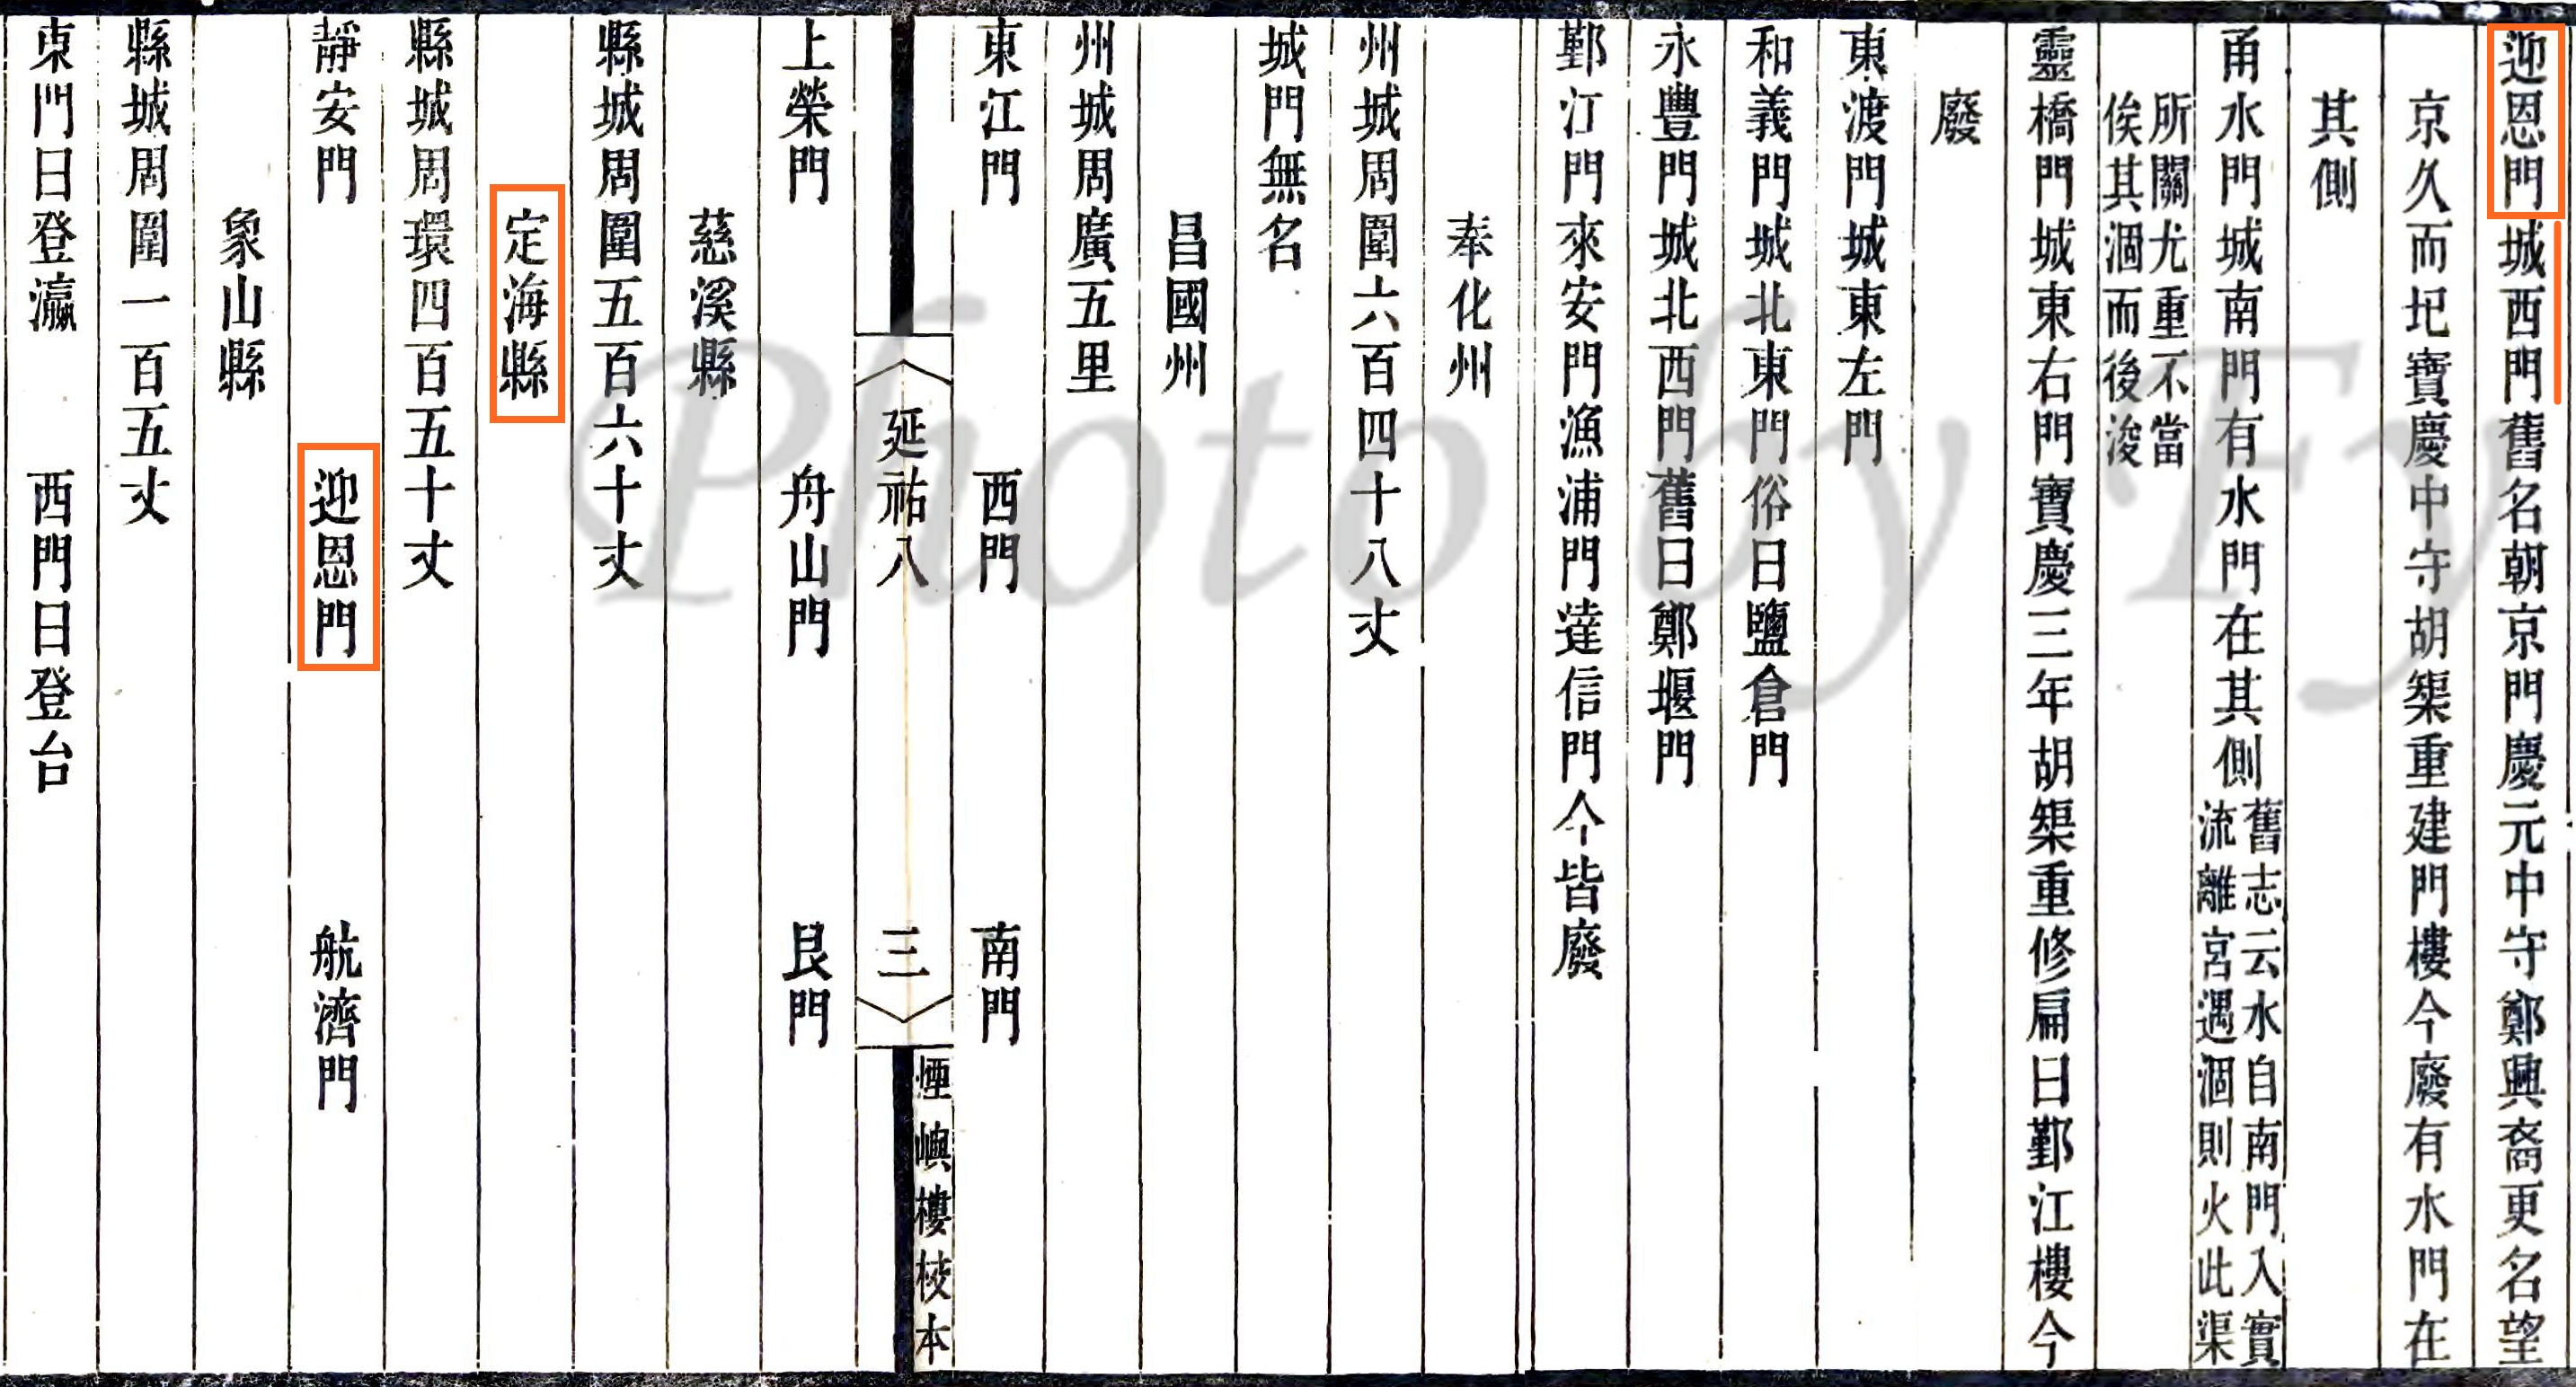 迎恩門城西門舊名朝京門慶元中守鄭興裔更名望
京久而圮寶慶中守胡榘重建門樓今廢有水門在
其側
甬水門城南門有水門在其側
舊志云水自南門入實
流離宮遇涸則火此渠
所關尤重不當
俟其涸而後浚
靈橋門城東右門寶慶三年胡榘重修扁曰鄞江樓今
廢
東渡門城東左門
和義門城北東門俗曰鹽倉門
永豐門城北西門舊曰鄭堰門
鄞江門來安門漁浦門達信門今皆廢
奉化州
州城周圍六百四十八丈
城門無名
昌國州
州城周廣五里
東江門 西門 南門
延祐八 三
煙嶼樓校本
上榮門 舟山門 艮門
慈溪縣
縣城周圍五百六十丈
定海縣
縣城周環四百五十丈
靜安門 迎恩門 航濟門
象山縣
縣城周圍一百五丈
東門曰登瀛 西門曰登台
Photo by Fy